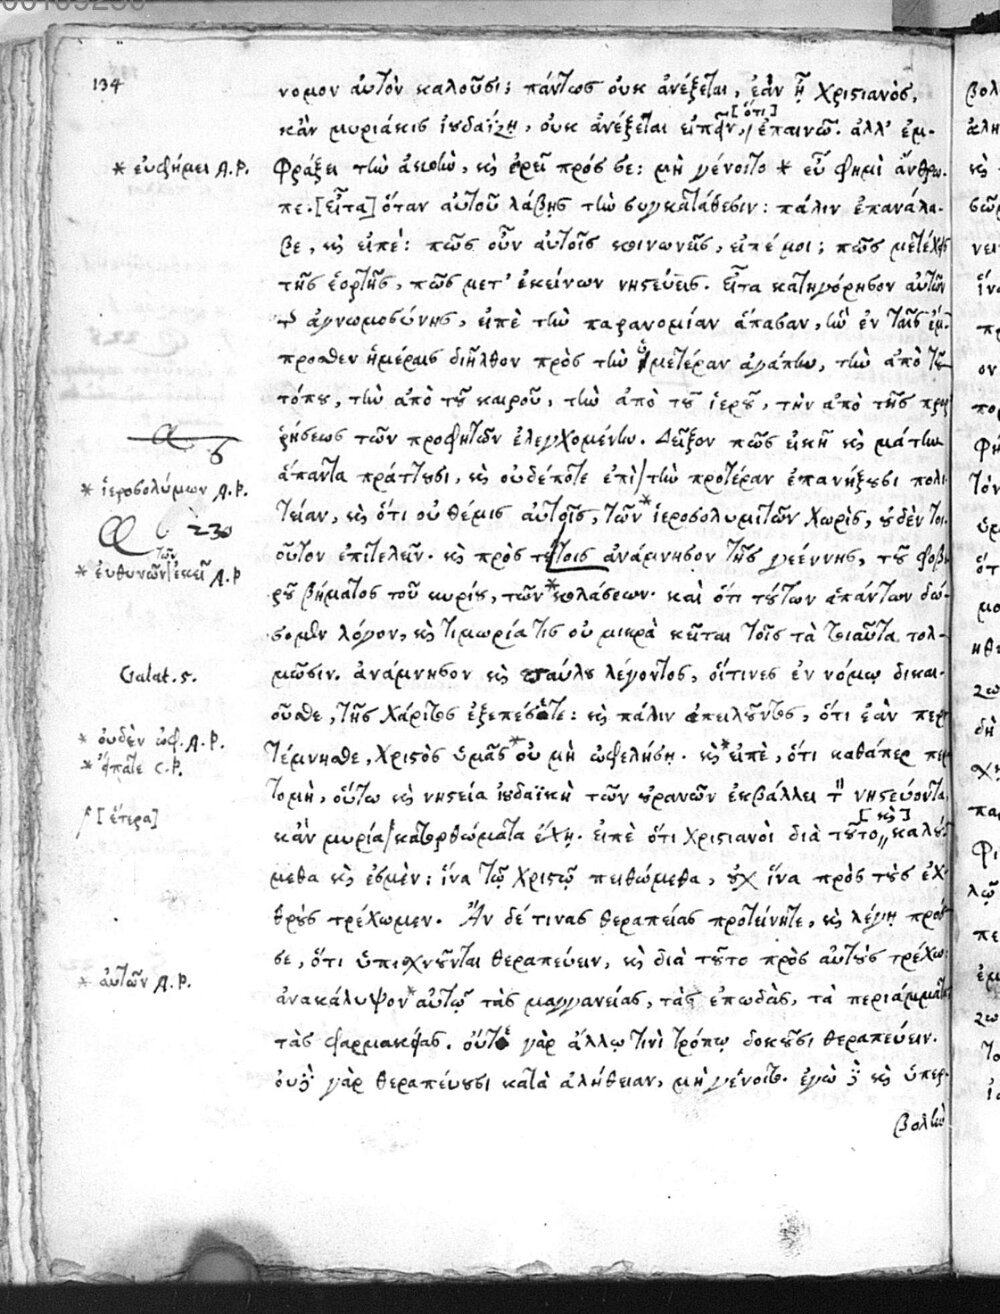 134
νομον αὐτὸν καλοῦσι; πάντως οὐκ ἀνέξεται, ἐὰν ᾖ Χριστιανὸς,
[ὅτι]
κἂν μυριάκις ἰουδαΐζῃ, οὐκ ἀνέξεται εἰπεῖν, ἐπαινῶ. ἀλλ' ἐμ-
* εὐφήμει A.R.
φράξει τὴν ἀκοὴν, καὶ ἐρεῖ πρός σε: μὴ γένοιτο * εὖ φημὶ ἄνθρω-
πε. [εἶτα] ὅταν αὐτοῦ λάβῃς τὴν συγκατάθεσιν: πάλιν ἐπανάλα-
βε, καὶ εἰπέ: πῶς οὖν αὐτοῖς κοινωνεῖς, εἰπέ μοι; πῶς μετέχεις
τῆς ἑορτῆς, πῶς μετ' ἐκείνων νηστεύεις. Εἶτα κατηγόρησον αὐτῶν
τ ἀγνωμοσύνης, εἰπὲ τὴν παρανομίαν ἅπασαν, ἣν ἐν ταῖς ἔμ-
προσθεν ἡμέραις διῆλθον πρὸς τὴν ὑμετέραν ἀγάπην, τὴν ἀπὸ τοῦ
τόπου, τὴν ἀπὸ τοῦ καιροῦ, τὴν ἀπὸ τοῦ ἱεροῦ, τὴν ἀπὸ τῆς προρ
ῥήσεως τῶν προφητῶν ἐλεγχομένην. Δεῖξον πῶς εἰκῆ καὶ μάτην
ἅπαντα πράττουσι, καὶ οὐδέποτε ἐπὶ τὴν προτέραν ἐπανήξουσι πολι
* ἱεροσολύμων A.R.
τείαν, καὶ ὅτι οὐ θέμις αὐτοῖς, τῶν * ἱεροσολυμιτῶν χωρὶς, οὐδὲν τοι-
230
οῦτον ἐπιτελεῖν. καὶ πρὸς τούτοις ἀνάμνησον τῆς γεέννης, τοῦ φοβε
τῶν
* εὐθυνῶν ἐκεῖ A.R
ροῦ βήματος τοῦ κυρίου, τῶν * κολάσεων. καὶ ὅτι τούτων ἁπάντων δώ-
σομεν λόγον, καὶ τιμωρία τις οὐ μικρὰ κεῖται τοῖς τὰ τοιαῦτα τολ-
Galat. 5.
μῶσιν. ἀνάμνησον καὶ παύλου λέγοντος, οἵτινες ἐν νόμῳ δικαι-
οῦσθε, τῆς χάριτος ἐξεπέσατε: καὶ πάλιν ἀπειλοῦντος, ὅτι ἐὰν περι
* οὐδὲν ὠφ. A.R.
τέμνησθε, Χριστὸς ὑμᾶς * οὐ μὴ ὠφελήσῃ. καὶ * εἰπὲ, ὅτι καθάπερ περι
* εἴπατε C.R.
τομὴ, οὕτω καὶ νηστεία ἰουδαϊκὴ τῶν οὐρανῶν ἐκβάλλει τ νηστεύοντα,
[ἕτερα]
[καὶ]
κἂν μυρία κατορθώματα ἔχῃ. εἰπὲ ὅτι Χριστιανοὶ διὰ τοῦτο καλού-
μεθα καὶ ἐσμὲν: ἵνα τῷ Χριστῷ πειθώμεθα, οὐχ ἵνα πρὸς τοὺς ἐχ-
θροὺς τρέχωμεν. Ἂν δέ τινας θεραπείας προτείνηται, καὶ λέγῃ πρός
σε, ὅτι ὑπισχνοῦνται θεραπεύειν, καὶ διὰ τοῦτο πρὸς αὐτοὺς τρέχω:
* αὐτῶν A.R.
ἀνακάλυψον * αὐτῷ τὰς μαγγανείας, τὰς ἐπωδὰς, τὰ περιάμματα
τὰς φαρμακείας. οὔτε γὰρ ἄλλῳ τινὶ τρόπῳ δοκοῦσι θεραπεύειν.
οὐδὲ γὰρ θεραπεύουσι κατὰ ἀλήθειαν, μὴ γένοιτο. ἐγὼ δὲ καὶ ὑπερ-
βολὴν